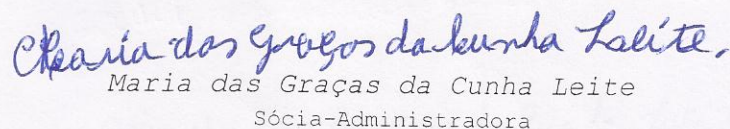 Maria das Graças da Cunha Leite.
Maria das Graças da Cunha Leite
Sócia-Administradora